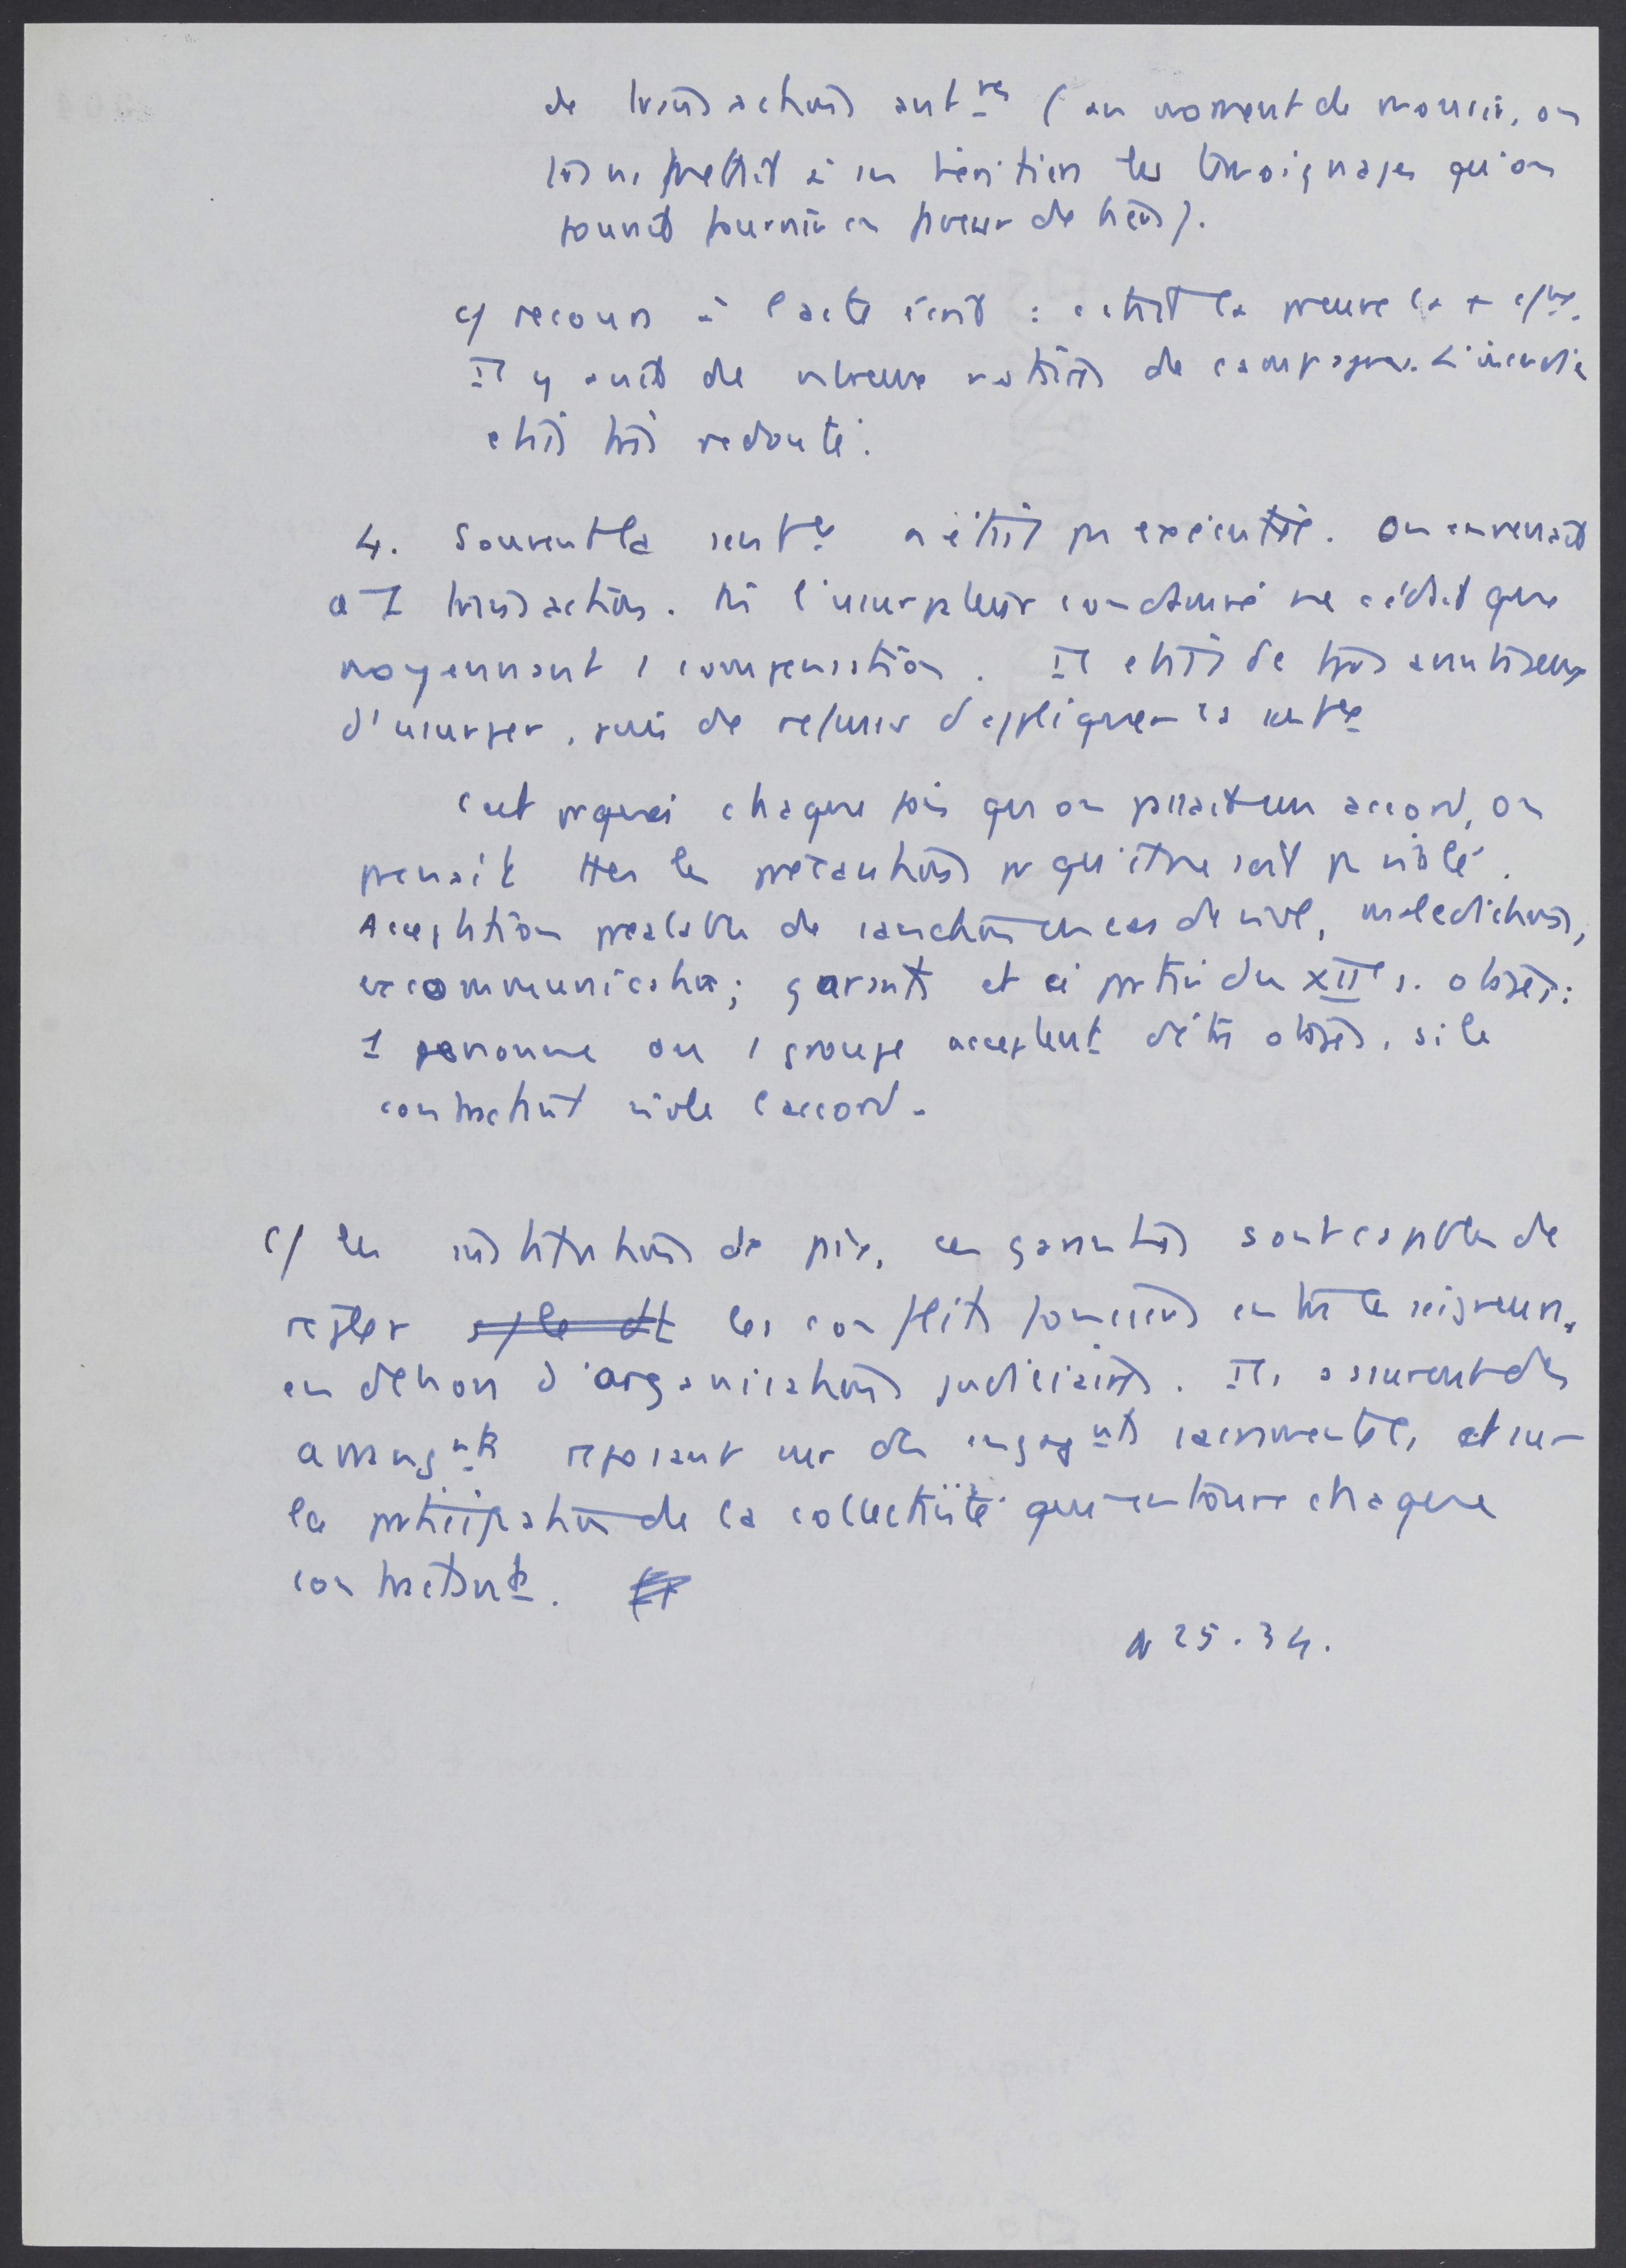 de transactions antres (au moment de mourir, on
transmettait à ses héritiers les témoignages qu'on
pouvait fournir en faveur de tiers).
c/ recours à l'acte écrit : c'était la preuve la +
Il y avait de notaires de campagne. L'incendie
était très redouté.
4. Souvent la sentce n'était pas exécutée. On en venait
à 1 transaction. Où l'usurpateur condamné ne cédait que
moyennant 1 compensation. Il était de très avantageux
d'usurper, puis de refuser d'appliquer la sentce
C'est pquoi chaque fois qu'on passait un accord, on
prenait ttes les précautions pr qu'il ne soit pas violé.
Acceptation préalable de sanctions en cas de viol, malédictions,
excommunication ; garants et à partir du XIIe s. otages :
1 personne ou 1 groupe acceptent d'être otages, si le
contractant viole l'accord.
C/ les institutions de paix, ces garanties sont capables de
régler les conflits fonciers entre les seigneurs,
en dehors d'organisations judiciaires. Ils assurent des
arrangnts reposant sur des engagnts sacramentels, et sur
la participation de la collectivité qui entoure chaque
contractant.
N 25.34.